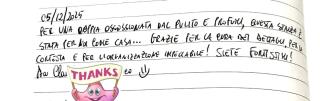 05/12/2025
PER UNA COPPIA OSSESSIONATA DAL PULITO E PROFUMI, QUESTA STANZA È
STATA PER NOI COME CASA... GRAZIE PER LA CURA DEI DETTAGLI, PER LA
CORTESIA E PER L'ORGANIZZAZIONE IMPECCABILE! SIETE FORTISSIMI!
THANKS